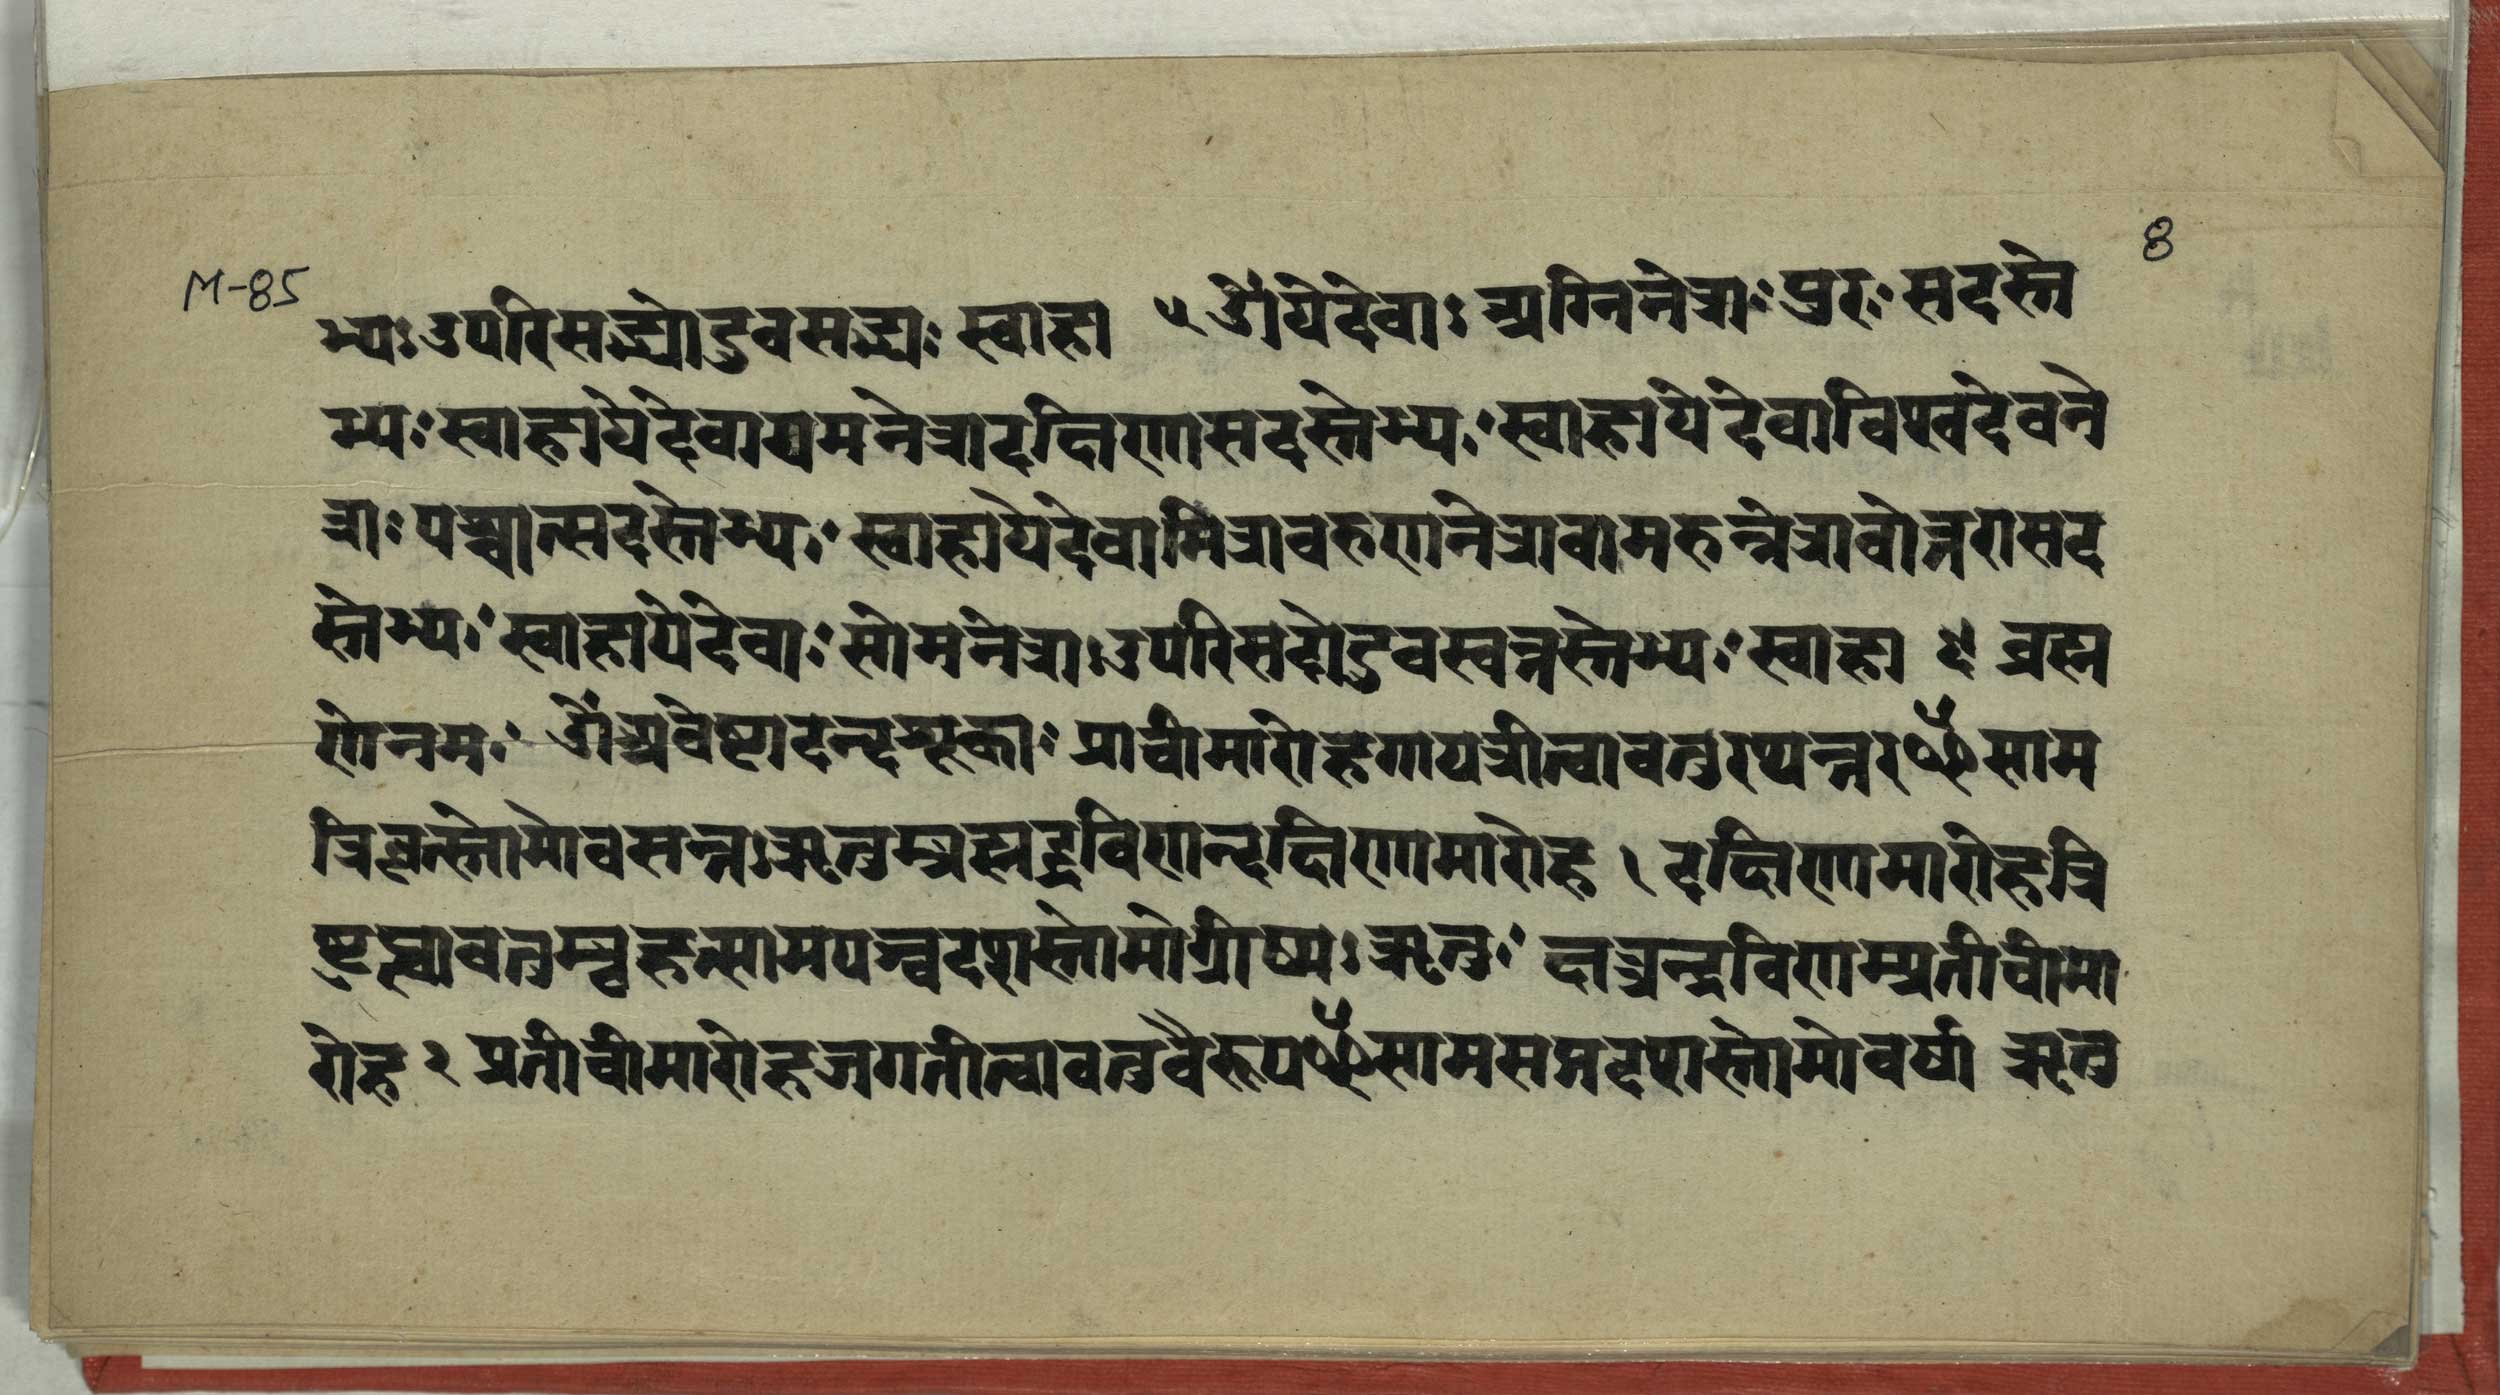 M-85
8
भ्यः उपरिसद्भ्योऽवसद्भ्यः स्वाहा ५ ॐ ये देवाः अग्निनेत्राः पुरः सदस्ते
भ्यः स्वाहा ये देवा यमनेत्रा दक्षिणासदस्तेभ्यः स्वाहा ये देवा विश्वदेवने
त्राः पश्चात्सदस्तेभ्यः स्वाहा ये देवा मित्रावरुणनेत्रा वा मरुन्नेत्रा वोत्तरासद
स्तेभ्यः स्वाहा ये देवाः सोमनेत्राः उपरिसदोऽवस्वन्तस्तेभ्यः स्वाहा ६ ब्रह्म
णे नमः ॐ अवेष्टा दन्दशूकाः प्राचीमारोह गायत्री त्वावतु रथन्तरꣳ साम
त्रिवृत्स्तोमो वसन्तः ऋतुम्ब्रह्मद्रविणन्दक्षिणामारोह १ दक्षिणामारोह त्रि
ष्टुप्त्वावतु म्बृहत्साम पञ्चदशस्तोमो ग्रीष्मः ऋतुः क्षत्त्रन्द्रविणम्प्रतीचीमा
रोह २ प्रतीचीमारोह जगती त्वावतु वैरूपꣳ साम सप्तदशस्तोमो वर्षा ऋतु